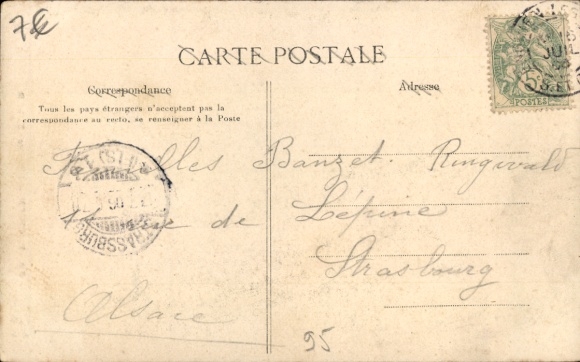 7€
CARTE POSTALE
Correspondance
Adresse
Tous les pays étrangers n'acceptent pas la
correspondance au recto, se renseigner à la Poste
5
POSTES
JUIL
Familles Banzet. Ringwald
rue de Lépine
STRASSBURG
Strasbourg
Alsace
95